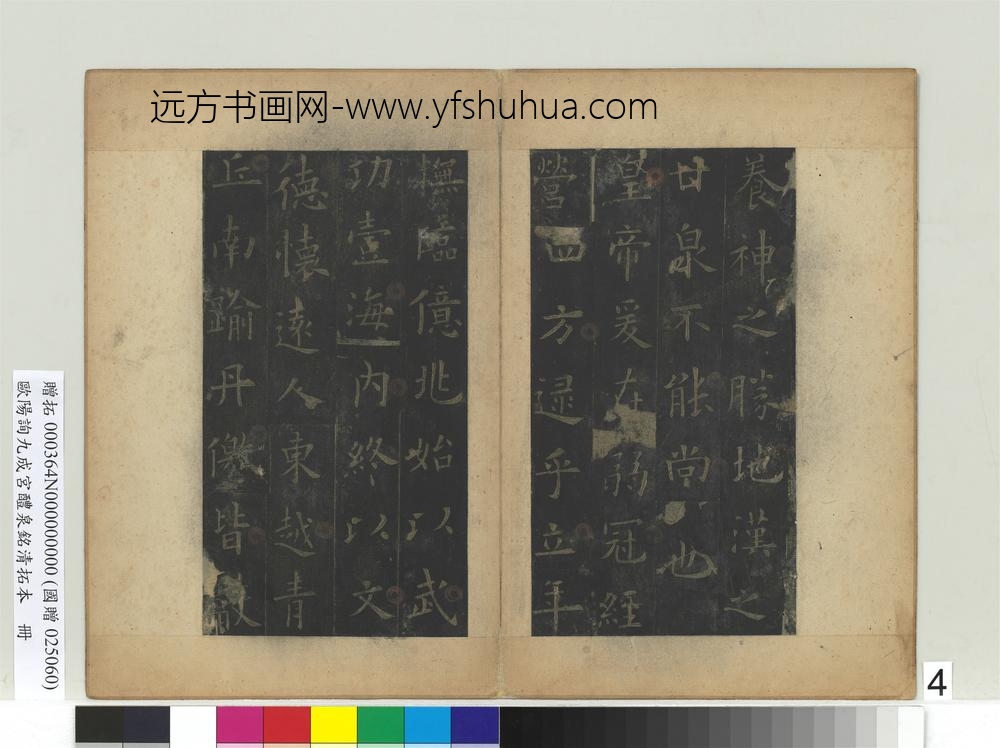 远方书画网-www.yfshuhua.com
養神之勝地漢之
甘泉不能尚也
皇帝爰在弱冠經
營四方逯乎立年
撫臨億兆始以武
功壹海內終以文
德懷遠人東越青
丘南踰丹儌皆獻
贈拓 000364N000000000 (國贈 025060)
歐陽詢九成宮醴泉銘清拓本 冊
4